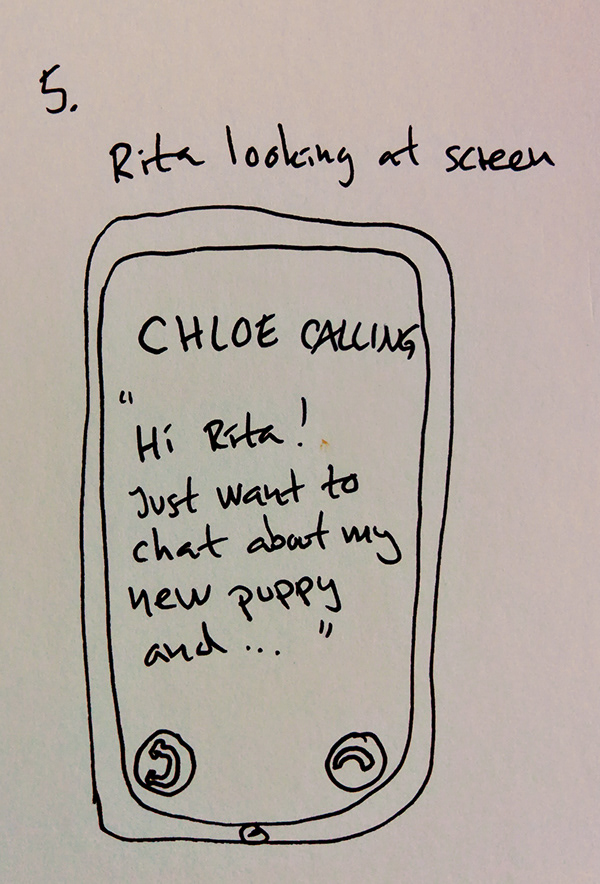 5.
Rita looking at screen
CHLOE CALLING
"Hi Rita!
Just want to
chat about my
new puppy
and ... "